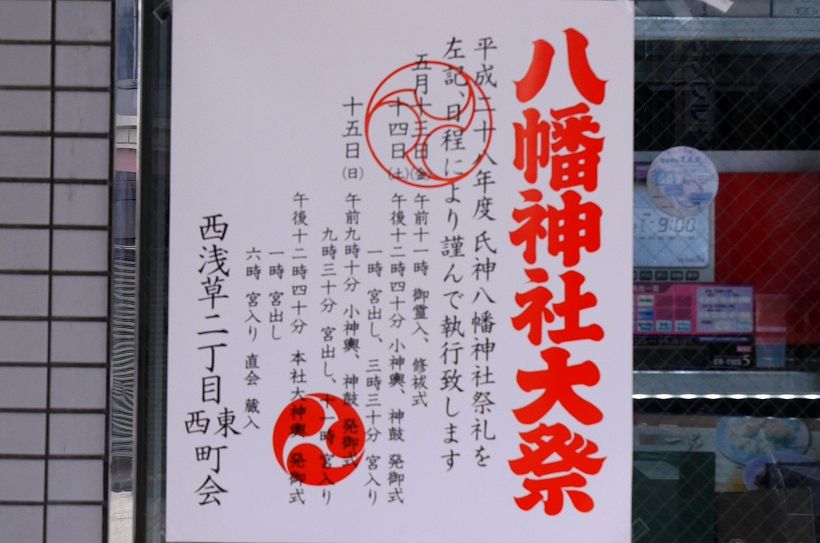 八幡神社大祭
平成二十八年度 氏神八幡神社祭礼を
左記、日程により謹んで執行致します
五月十三日(金) 午前十一時 御霊入、修祓式
十四日(土) 午後十二時四十分 小神輿、神鼓 発御式
一時 宮出し、三時三十分 宮入り
十五日(日) 午前九時十分 小神輿、神鼓 発御式
九時三十分 宮出し、十一時 宮入り
午後十二時四十分 本社大神輿 発御式
一時 宮出し
六時 宮入り 直会 蔵入
西浅草二丁目 東西 町会
9:00